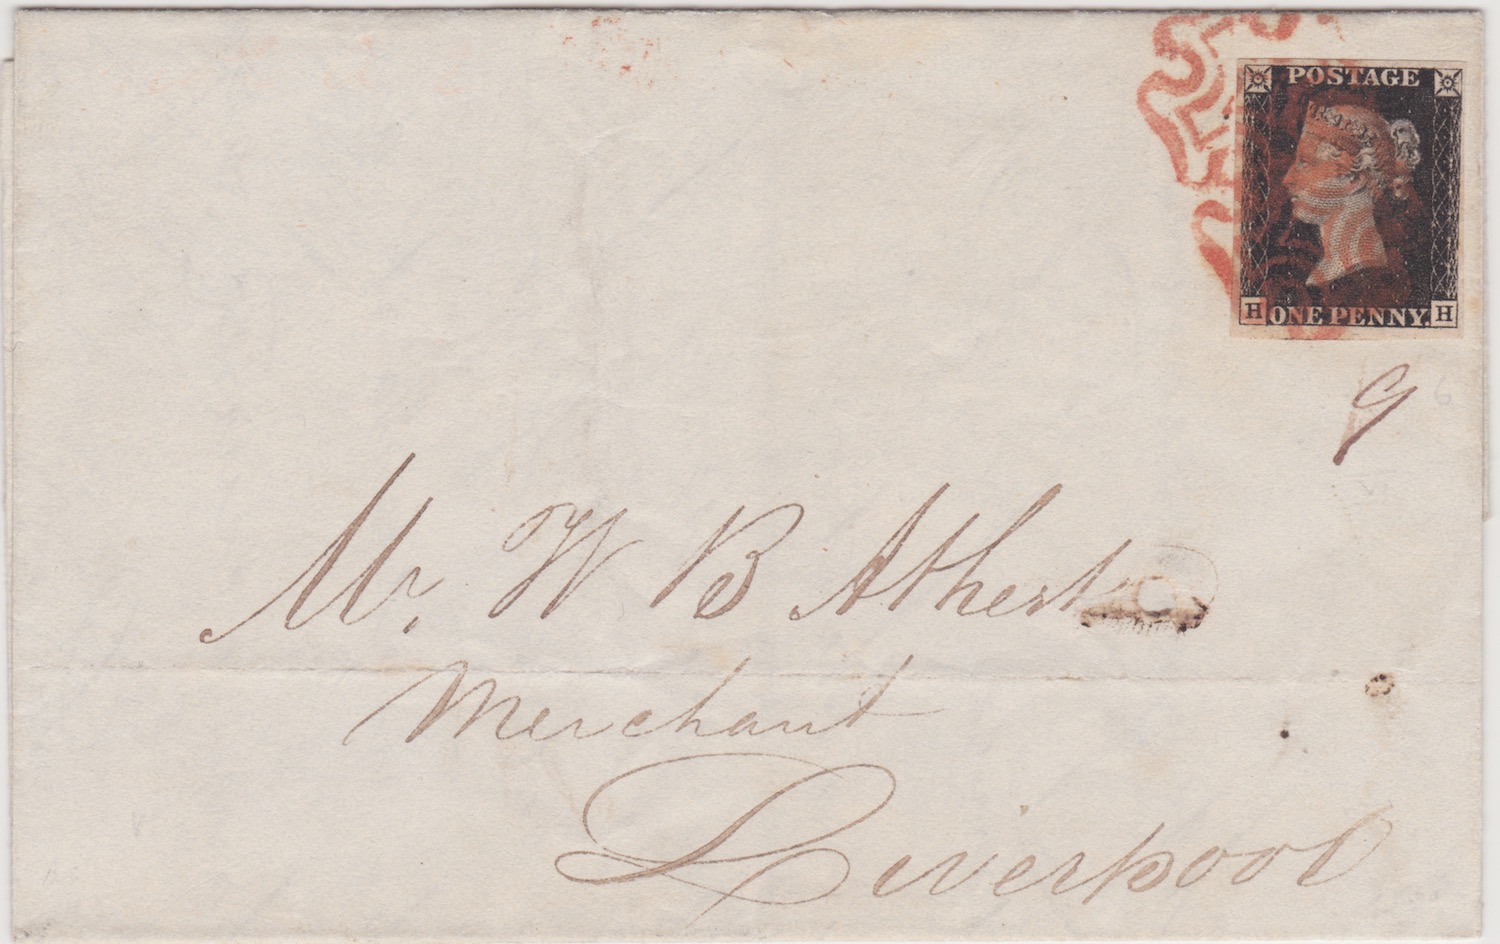 POSTAGE
H ONE PENNY. H
9
6
Mr. W B Atherton
Merchant
Liverpool